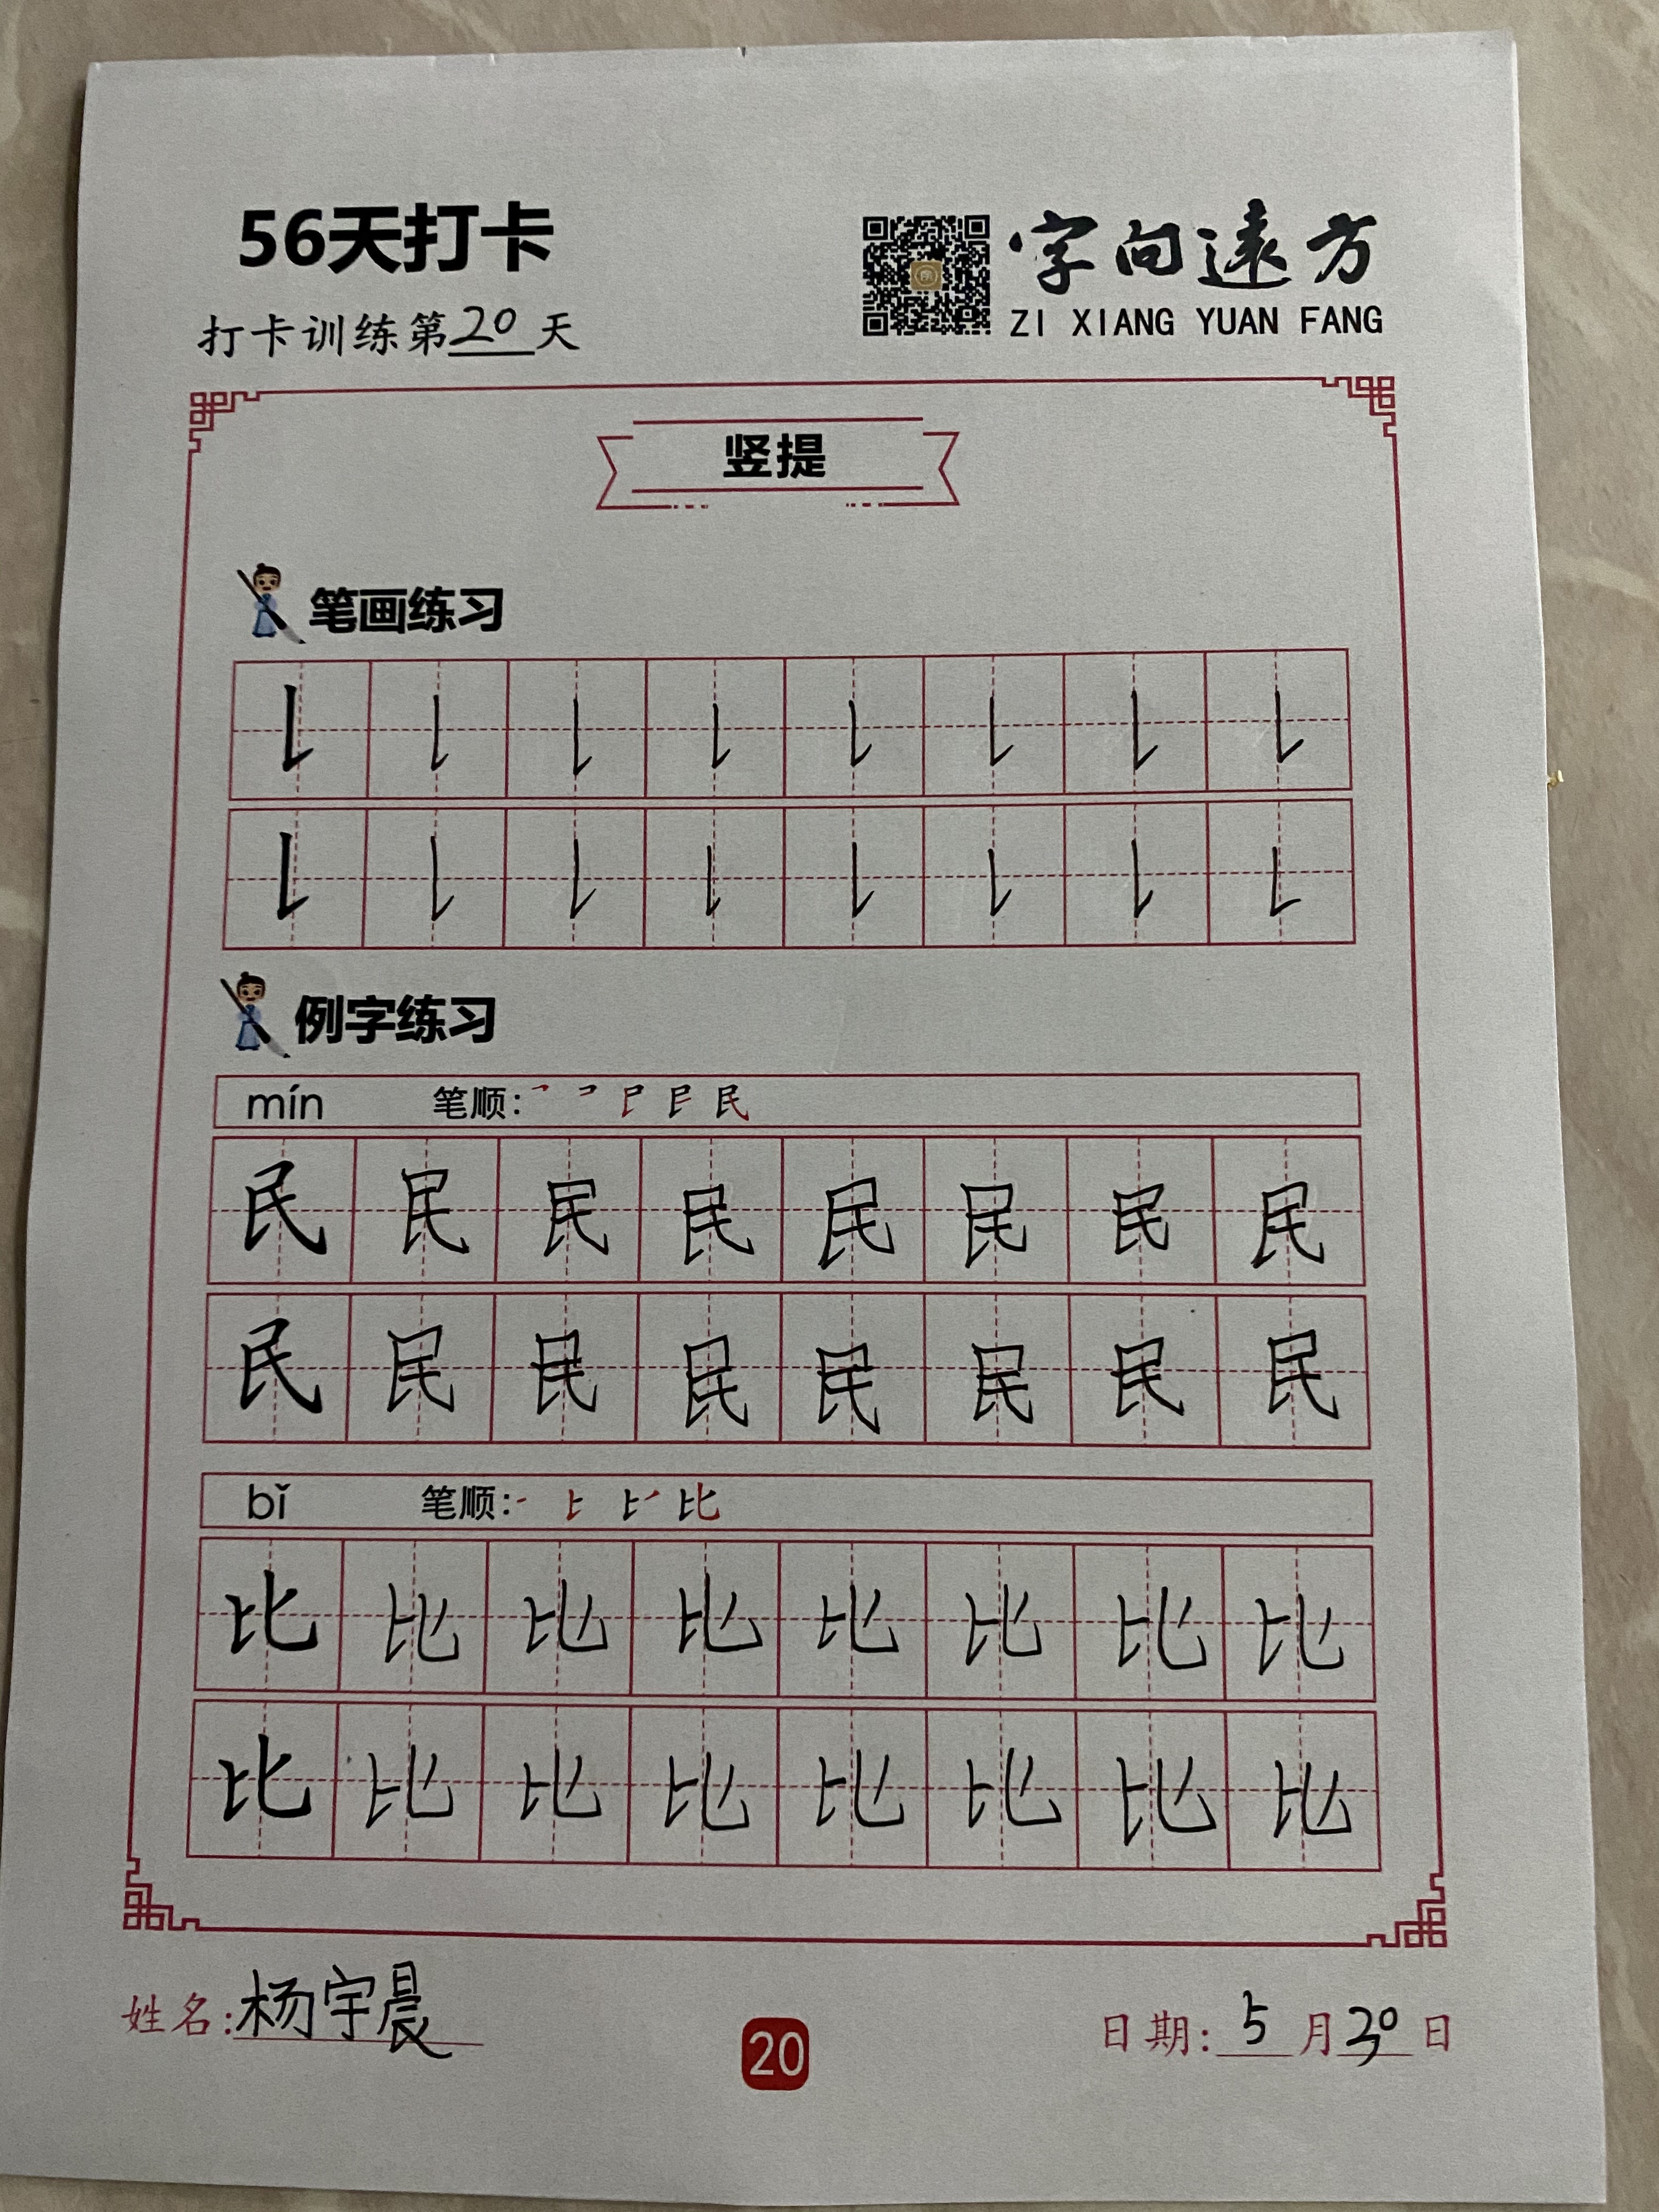 56天打卡
字向遠方
ZI XIANG YUAN FANG
打卡训练第20天
竖提
笔画练习
例字练习
mín 笔顺:
民 民 民 民 民 民 民 民
民 民 民 民 民 民 民 民
bǐ 笔顺:
比 比 比 比 比 比 比 比
比 比 比 比 比 比 比 比
姓名:杨宇晨
20
日期:5月30日